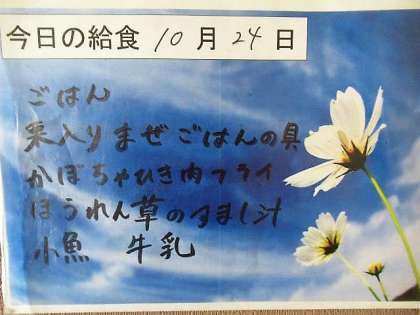 今日の給食 10月24日
ごはん
栗入りまぜごはんの具
かぼちゃひき肉フライ
ほうれん草のすまし汁
小魚 牛乳